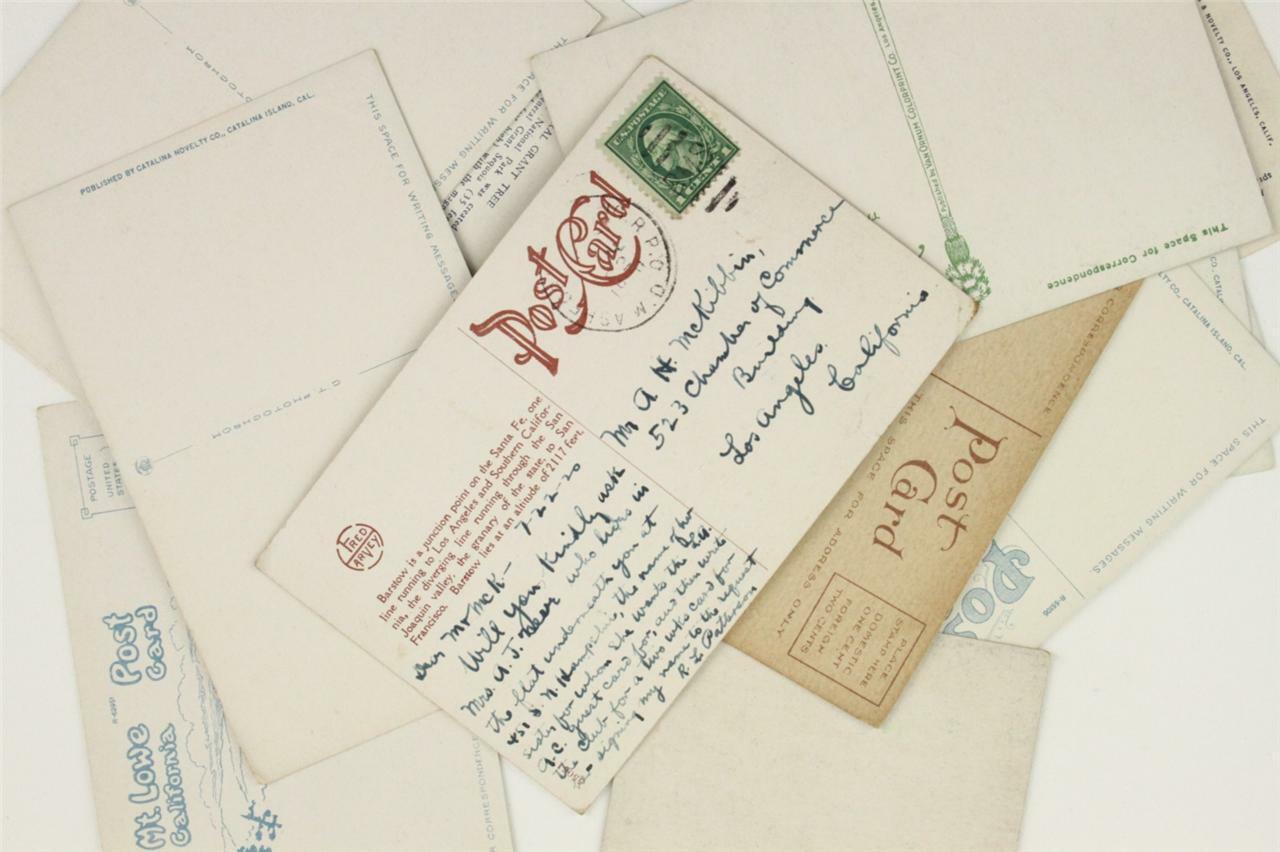 U.S. POSTAGE
1 CENT 1
Post Card
R.P.O. OMAHA
Mr. A. H. McKibbin,
523 Chamber of Commerce
Building
Los Angeles.
California
FRED
HARVEY
Barstow is a junction point on the Santa Fe, one
line running to Los Angeles and Southern Califor-
nia, the diverging line running through the San
Joaquin valley, the granary of the state, to San
Francisco. Barstow lies at an altitude of 2117 feet.
7-22-20
Dear Mr McK.-
Will you kindly ask
Mrs. A. J. who lives in
the flat underneath you at
451 S. N. Hampshire, the name of her
sister for whom she wants the L.A.
A.C. guest card for, and then write
the club for a two wks card for
signing my name to the request
R. L. Patterson
PUBLISHED BY CATALINA NOVELTY CO., CATALINA ISLAND, CAL.
THIS SPACE FOR WRITING MESSAGES
PHOTOCHROM
ACE FOR WRITING MESS
AL GRANT TREE
eneral Grant Sequoia
National Park was created
high) with the
(35 fee
Published by VAN ORNUM COLORPRINT CO. LOS ANGELES,
This Space for Correspondence
& NOVELTY CO., LOS ANGELES, CALIF.
CORRESPONDENCE
Post
Card
THIS SPACE FOR ADDRESS ONLY
PLACE
STAMP HERE
DOMESTIC
ONE CENT
FOREIGN
TWO CENTS
TY CO., CATALINA ISLAND, CAL.
THIS SPACE FOR WRITING MESSAGES
Pos
POSTAGE
UNITED
STATES
Post
Card
Mt. Lowe
California
R CORRESPONDENCE